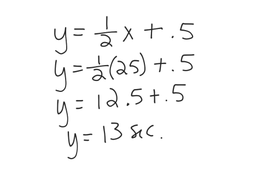 y = 1/2 x + .5
y = 1/2(25) + .5
y = 12.5 + .5
y = 13 sec.